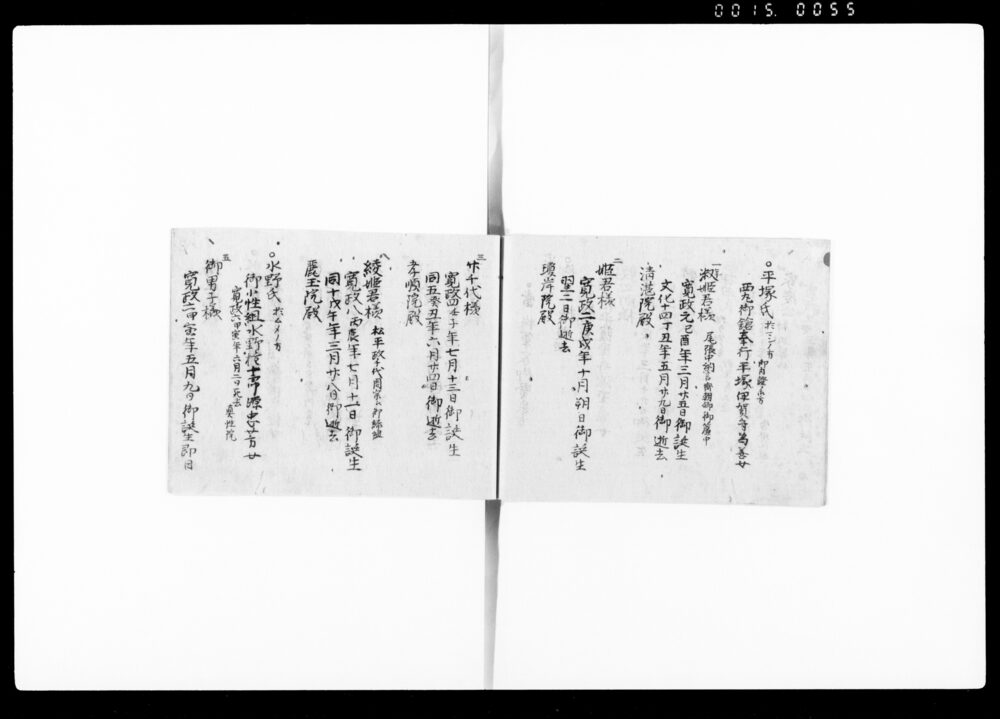 0015. 0055
。平塚氏 於マンノ方 御内證ノ方
西丸御鎗奉行平塚伊賀守為善女
一 淑姫君様 尾張中納言齊朝卿御簾中
寛政元己酉年三月廿五日御誕生
文化十四丁丑年五月廿九日御逝去
清湛院殿
二 姫君様
寛政二庚戌年十月朔日御誕生
翌二日御逝去
瓊岸院殿
三 竹千代様
寛政四壬子年七月十三日御誕生
同五癸丑年六月廿四日御逝去
孝順院殿
八 綾姫君様 松平政千代周宗ニ御縁組
寛政八丙辰年七月十一日御誕生
同十戊午年三月廿八日御逝去
麗玉院殿
。水野氏 於ムメノ方
御小性組水野権十郎源忠芳女
寛政六甲寅年六月二日死去 真性院
五 御男子様
寛政六甲寅年五月九日御誕生即日